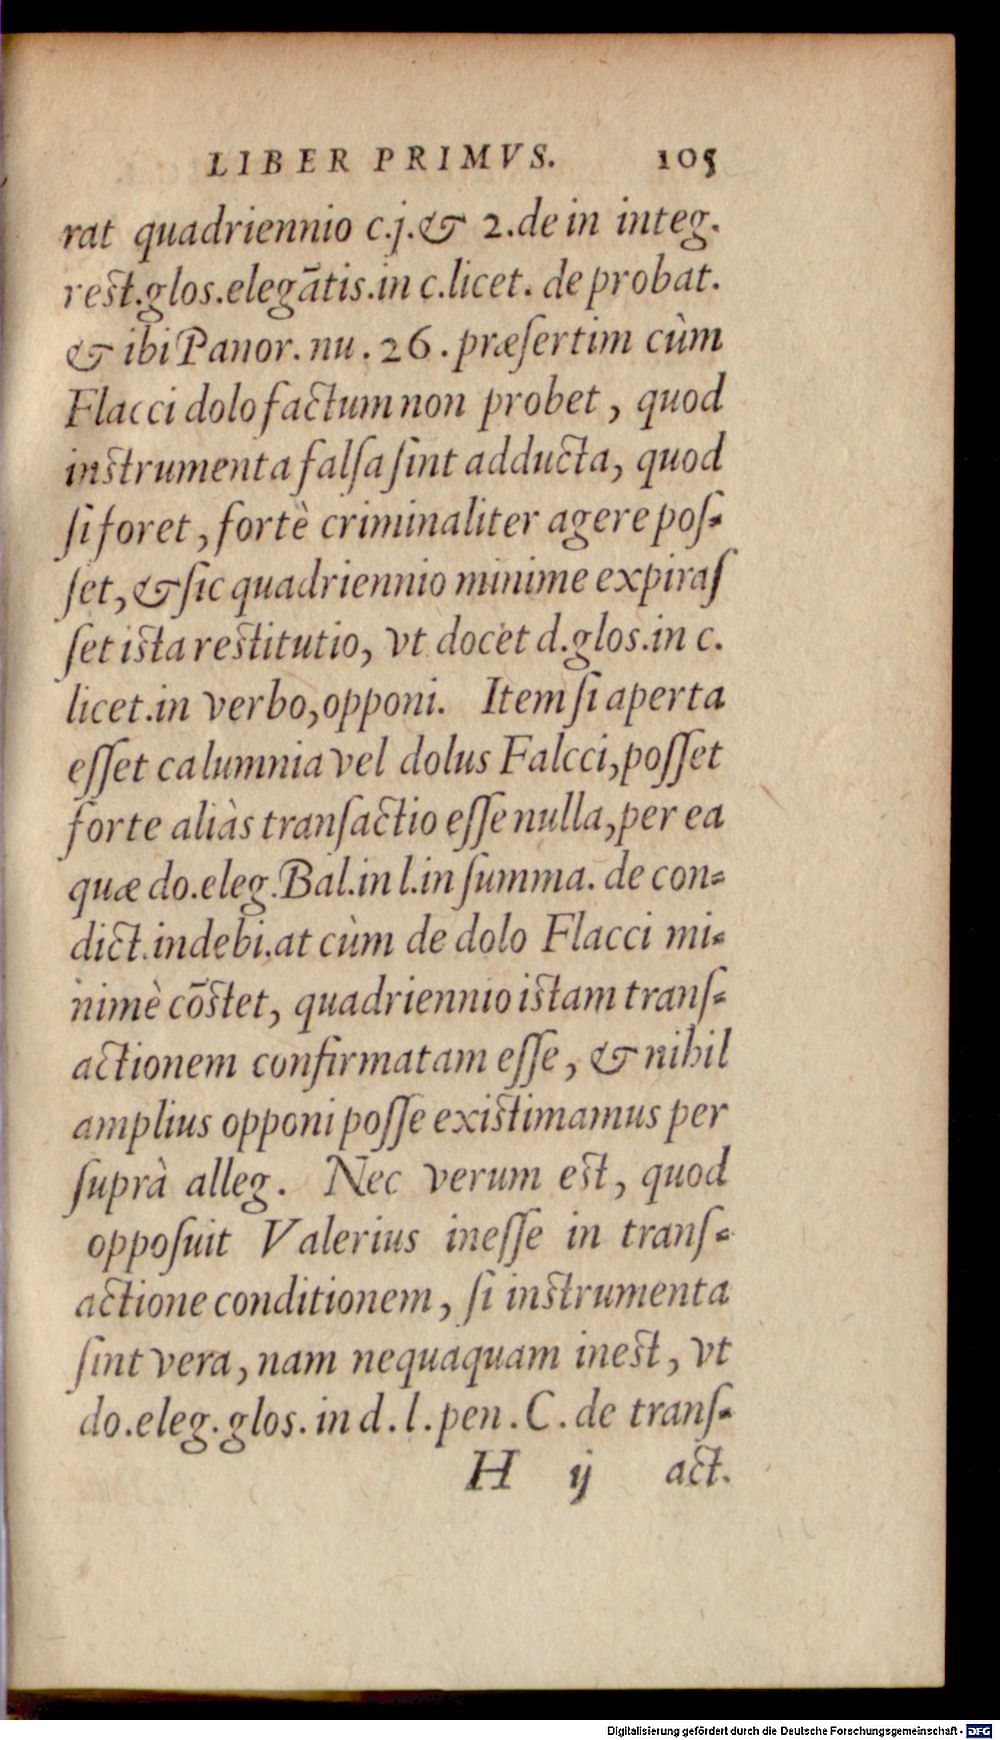 LIBER PRIMVS. 105
rat quadriennio c.j.& 2.de in integ.
rest.glos.elegãtis.in c.licet. de probat.
& ibi Panor. nu. 26. præſertim cùm
Flacci dolo factum non probet, quod
instrumenta falſa ſint adducta, quod
ſi foret, fortè criminaliter agere poſ-
ſet, & ſic quadriennio minime expiraſ
ſet ista restitutio, vt docet d.glos.in c.
licet.in verbo,opponi. Item ſi aperta
eſſet calumnia vel dolus Falcci,poſſet
forte aliàs tranſactio eſſe nulla,per ea
quæ do.eleg.Bal.in l.in ſumma. de con-
dict.indebi.at cùm de dolo Flacci mi-
nimè cõstet, quadriennio istam tranſ-
actionem confirmatam eſſe, & nihil
amplius opponi poſſe existimamus per
ſuprà alleg. Nec verum est, quod
oppoſuit Valerius ineſſe in tranſ-
actione conditionem, ſi instrumenta
ſint vera, nam nequaquam inest, vt
do.eleg.glos. in d.l.pen.C.de tranſ-
H ij act.
Digitalisierung gefördert durch die Deutsche Forschungsgemeinschaft - DFG